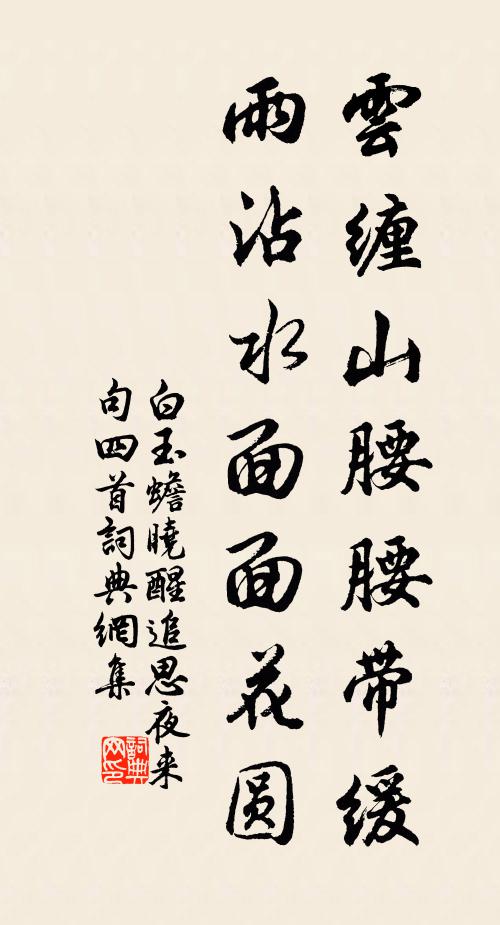 雲纏山腰腰带緩
雨沾水面面花圓
白玉蟾曉醒追思夜来
句四首詞典網集
詞典网印